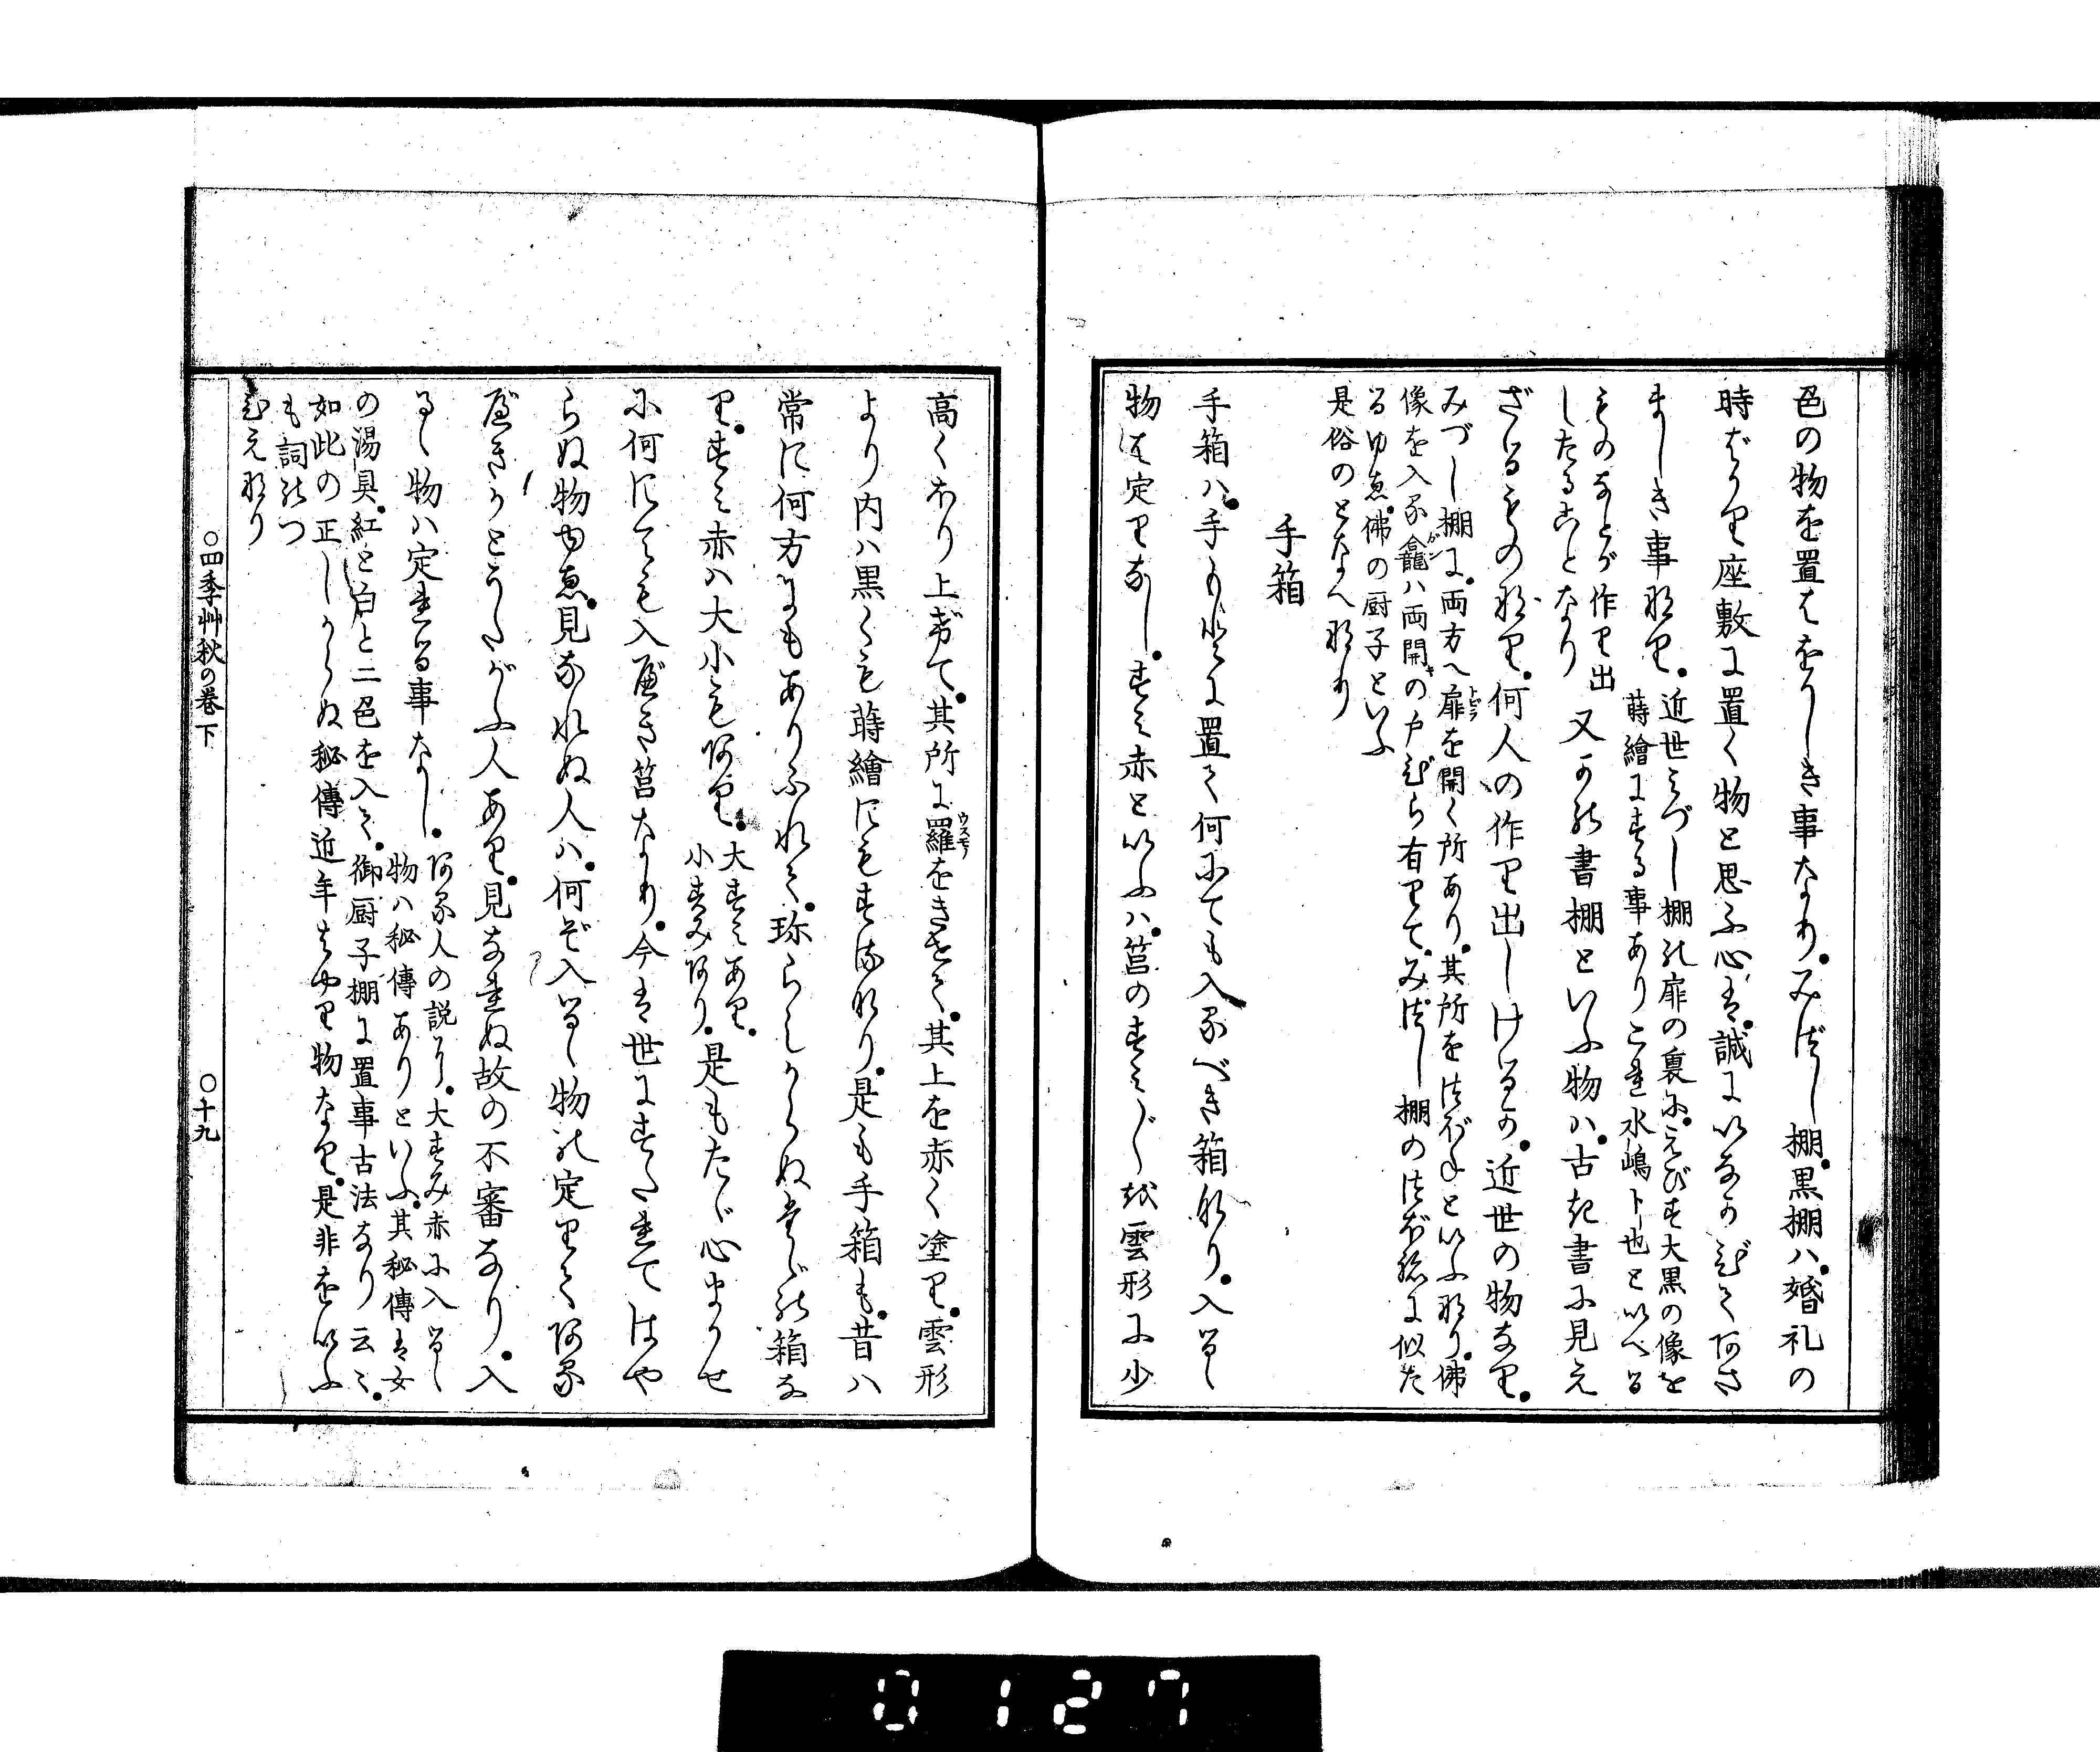 色の物を置はをかしき事なり。みづし棚。黒棚ハ。婚礼の
時ばかり座敷に置く物と思ふ心は。誠にいなかびてあさ
ましき事なり。
近世みづし棚の扉の裏に。えびす大黒の像を
蒔繪にする事ありこれ水嶋卜也といへる
ものなとが作り出
したることなり
又かの書棚といふ物ハ。古き書に見え
ざるものなり。何人の作り出しけるか。近世の物なり。
みづし棚に。両方へ扉を開く所あり。其所をつぼねといふなり。佛
像を入る龕ハ両開の戸びら有りて。みづし棚のつぼねに似た
るゆゑ。佛の厨子といふ
是俗のとなへなり
手箱
手箱ハ。手もとに置て何にても入るべき箱なり。入るゝ
物は定りなし。すみ赤といふハ。筥のすみ〴〵を雲形に少
高くほり上げて。其所に羅をきせて。其上を赤く塗り。雲形
より内ハ黒くも蒔繪にもするなり。是も手箱も。昔ハ
常に何方にもありふれて。珍らしからぬたゞの箱な
り。すみ赤ハ大小もあり。
大すみあり。
小すみあり。
是もたゞ心まかせ
に何にても入べき筥なり。今は世にすたれてはや
らぬ物ゆゑ。見なれぬ人ハ。何ぞ入るゝ物の定りてある
べきかとうたがふ人あり。見なれぬ故の不審なり。入
るゝ物ハ定れる事なし。
ある人の説に。大すみ赤に入るゝ
物ハ秘傳ありといふ。其秘傳は女
の湯具。紅と白と二色を入て。御厨子棚に置事古法なり云々。
如此の正しからぬ秘傳近年はやり物なり。是非をいふ
も詞のつ
ひえなり
〇四季艸秋の巻下
〇十九
0127